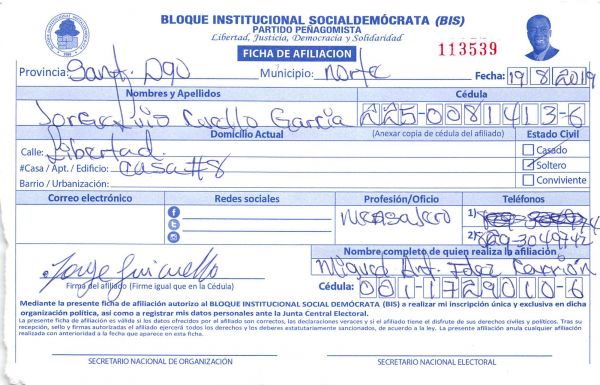 BLOQUE INSTITUCIONAL SOCIALDEMÓCRATA (BIS)
PARTIDO PEÑAGOMISTA
Libertad, Justicia, Democracia y Solidaridad
FICHA DE AFILIACION
113539
Provincia: Sant. Dgo Municipio: Norte Fecha: 19/8/2019
Nombres y Apellidos Cédula
Jorge Luis Cuello García 225-0081413-6
Domicilio Actual (Anexar copia de cédula del afiliado) Estado Civil
Calle: Libertad. Casado
#Casa / Apt. / Edificio: Casa #8 Soltero
Barrio / Urbanización: Conviviente
Correo electrónico Redes sociales Profesión/Oficio Teléfonos
Mensajero 1)
2) 829-3049742
Nombre completo de quien realiza la afiliación
Miguel Ant. Fdez Carrión
Firma del afiliado (Firme igual que en la Cédula) Cédula: 001-1729010-6
Mediante la presente ficha de afiliación autorizo al BLOQUE INSTITUCIONAL SOCIAL DEMÓCRATA (BIS) a realizar mi inscripción única y exclusiva en dicha
organización política, así como a registrar mis datos personales ante la Junta Central Electoral.
La presente ficha de afiliación es válida si los datos ofrecidos por el afiliado son correctos, las declaraciones veraces y si el afiliado tiene el disfrute de sus derechos civiles y políticos. Tras su
recepción, sello y firmas autorizadas el afiliado ejercerá todos los derechos y los deberes estatutariamente sancionados, de acuerdo a la ley. La presente afiliación anula cualquier afiliación
realizada con anterioridad a la fecha que aparece en esta ficha.
SECRETARIO NACIONAL DE ORGANIZACIÓN SECRETARIO NACIONAL ELECTORAL